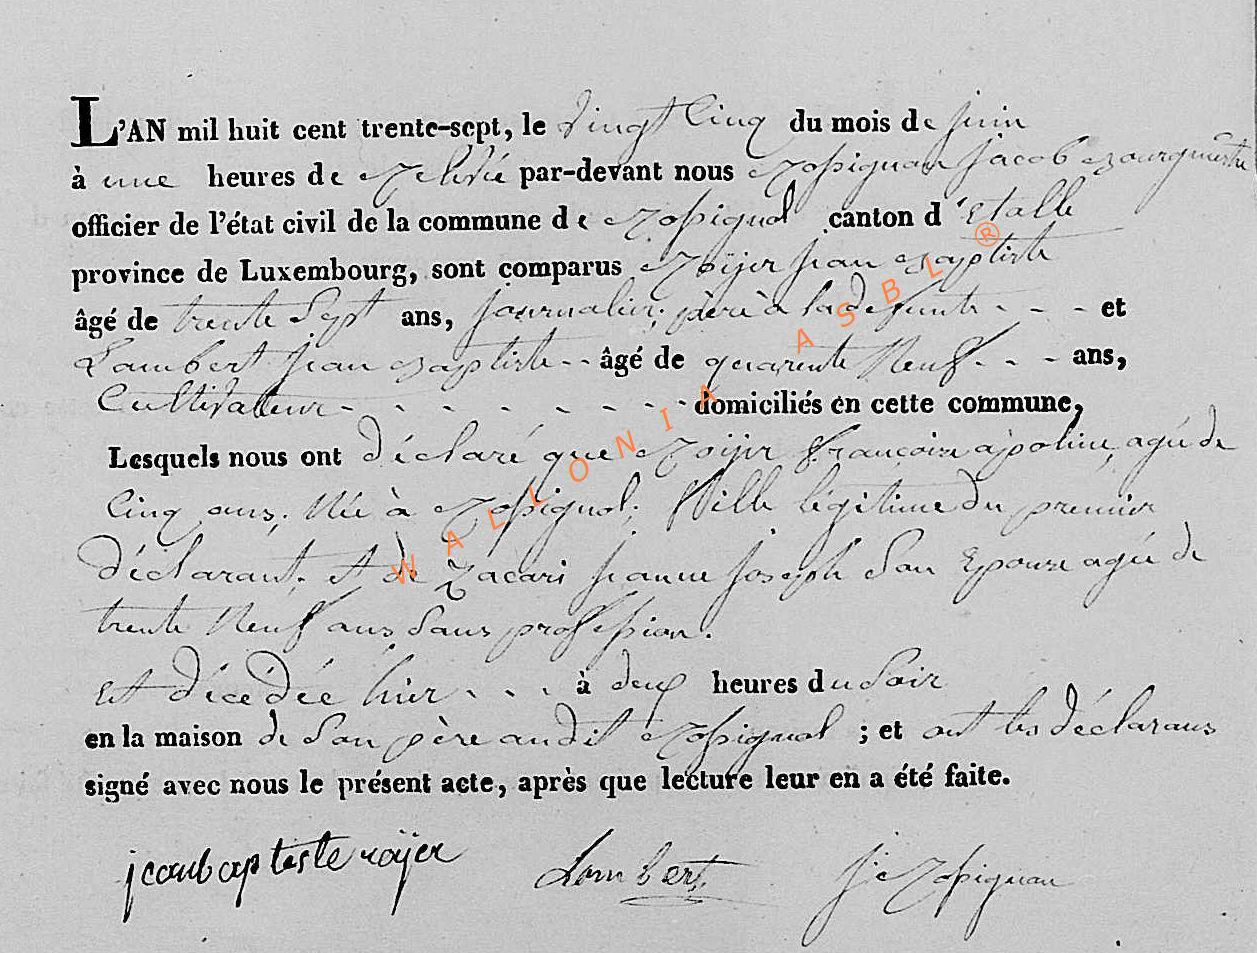 L'AN mil huit cent trente-sept, le vingt Cinq du mois de juin
à une heures de Relevée par-devant nous Rossignon Jacob Bourgmestre
officier de l'état civil de la commune de Rossignol canton d'Etalle
province de Luxembourg, sont comparus Roÿer jean Baptiste
âgé de trente Sept ans, journalier, père à la defunte - - - et
Lambert jean Baptiste - - âgé de quarente Neuf - - - ans,
Cultivateur - - - - - - - - domiciliés en cette commune,
Lesquels nous ont déclaré que Roÿer Françoise apoline, agée de
Cinq ans. Née à Rossignol, Fille légitime du premier
déclarant. et de Zacari jeanne joseph Son Epouse agée de
trente Neuf ans Sans profession.
Est décédée hier - - - à deux heures du Soir
en la maison de Son père audit Rossignol ; et ont les déclarans
signé avec nous le présent acte, après que lecture leur en a été faite.
jeanbaptiste roÿer Lambert Jc Rossignon
WALLONIA ASBL ®